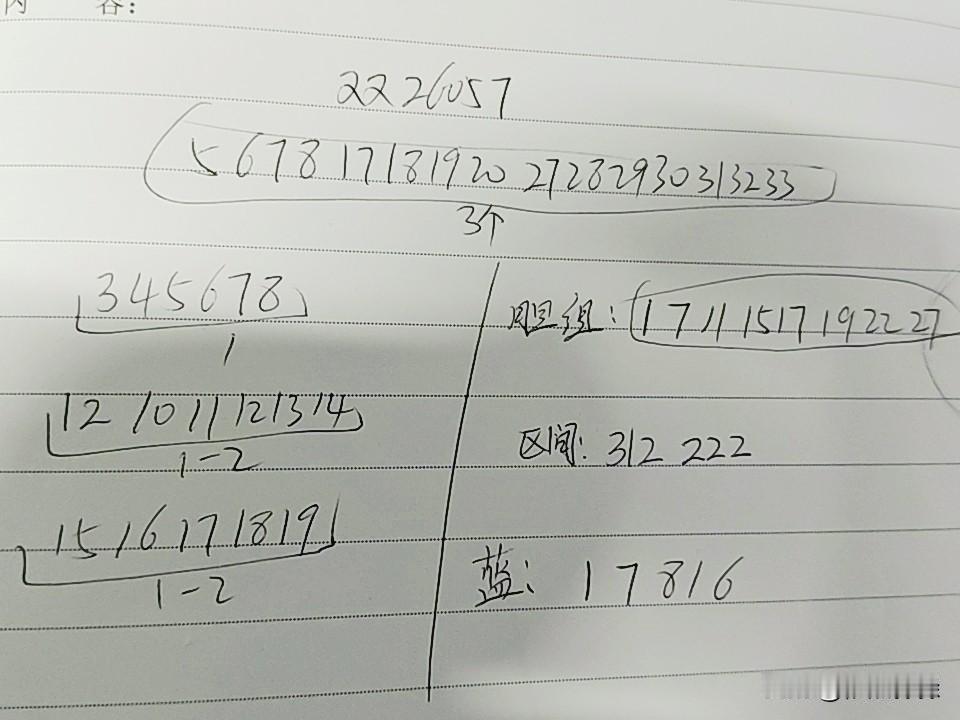 内 容:
22 26057
5 6 7 8 17 18 19 20 27 28 29 30 31 32 33
3个
3 4 5 6 7 8
1
1 2 10 11 12 13 14
1-2
15 16 17 18 19
1-2
胆组: 1 7 11 15 17 19 22 27
区间: 312 222
蓝: 1 7 8 16